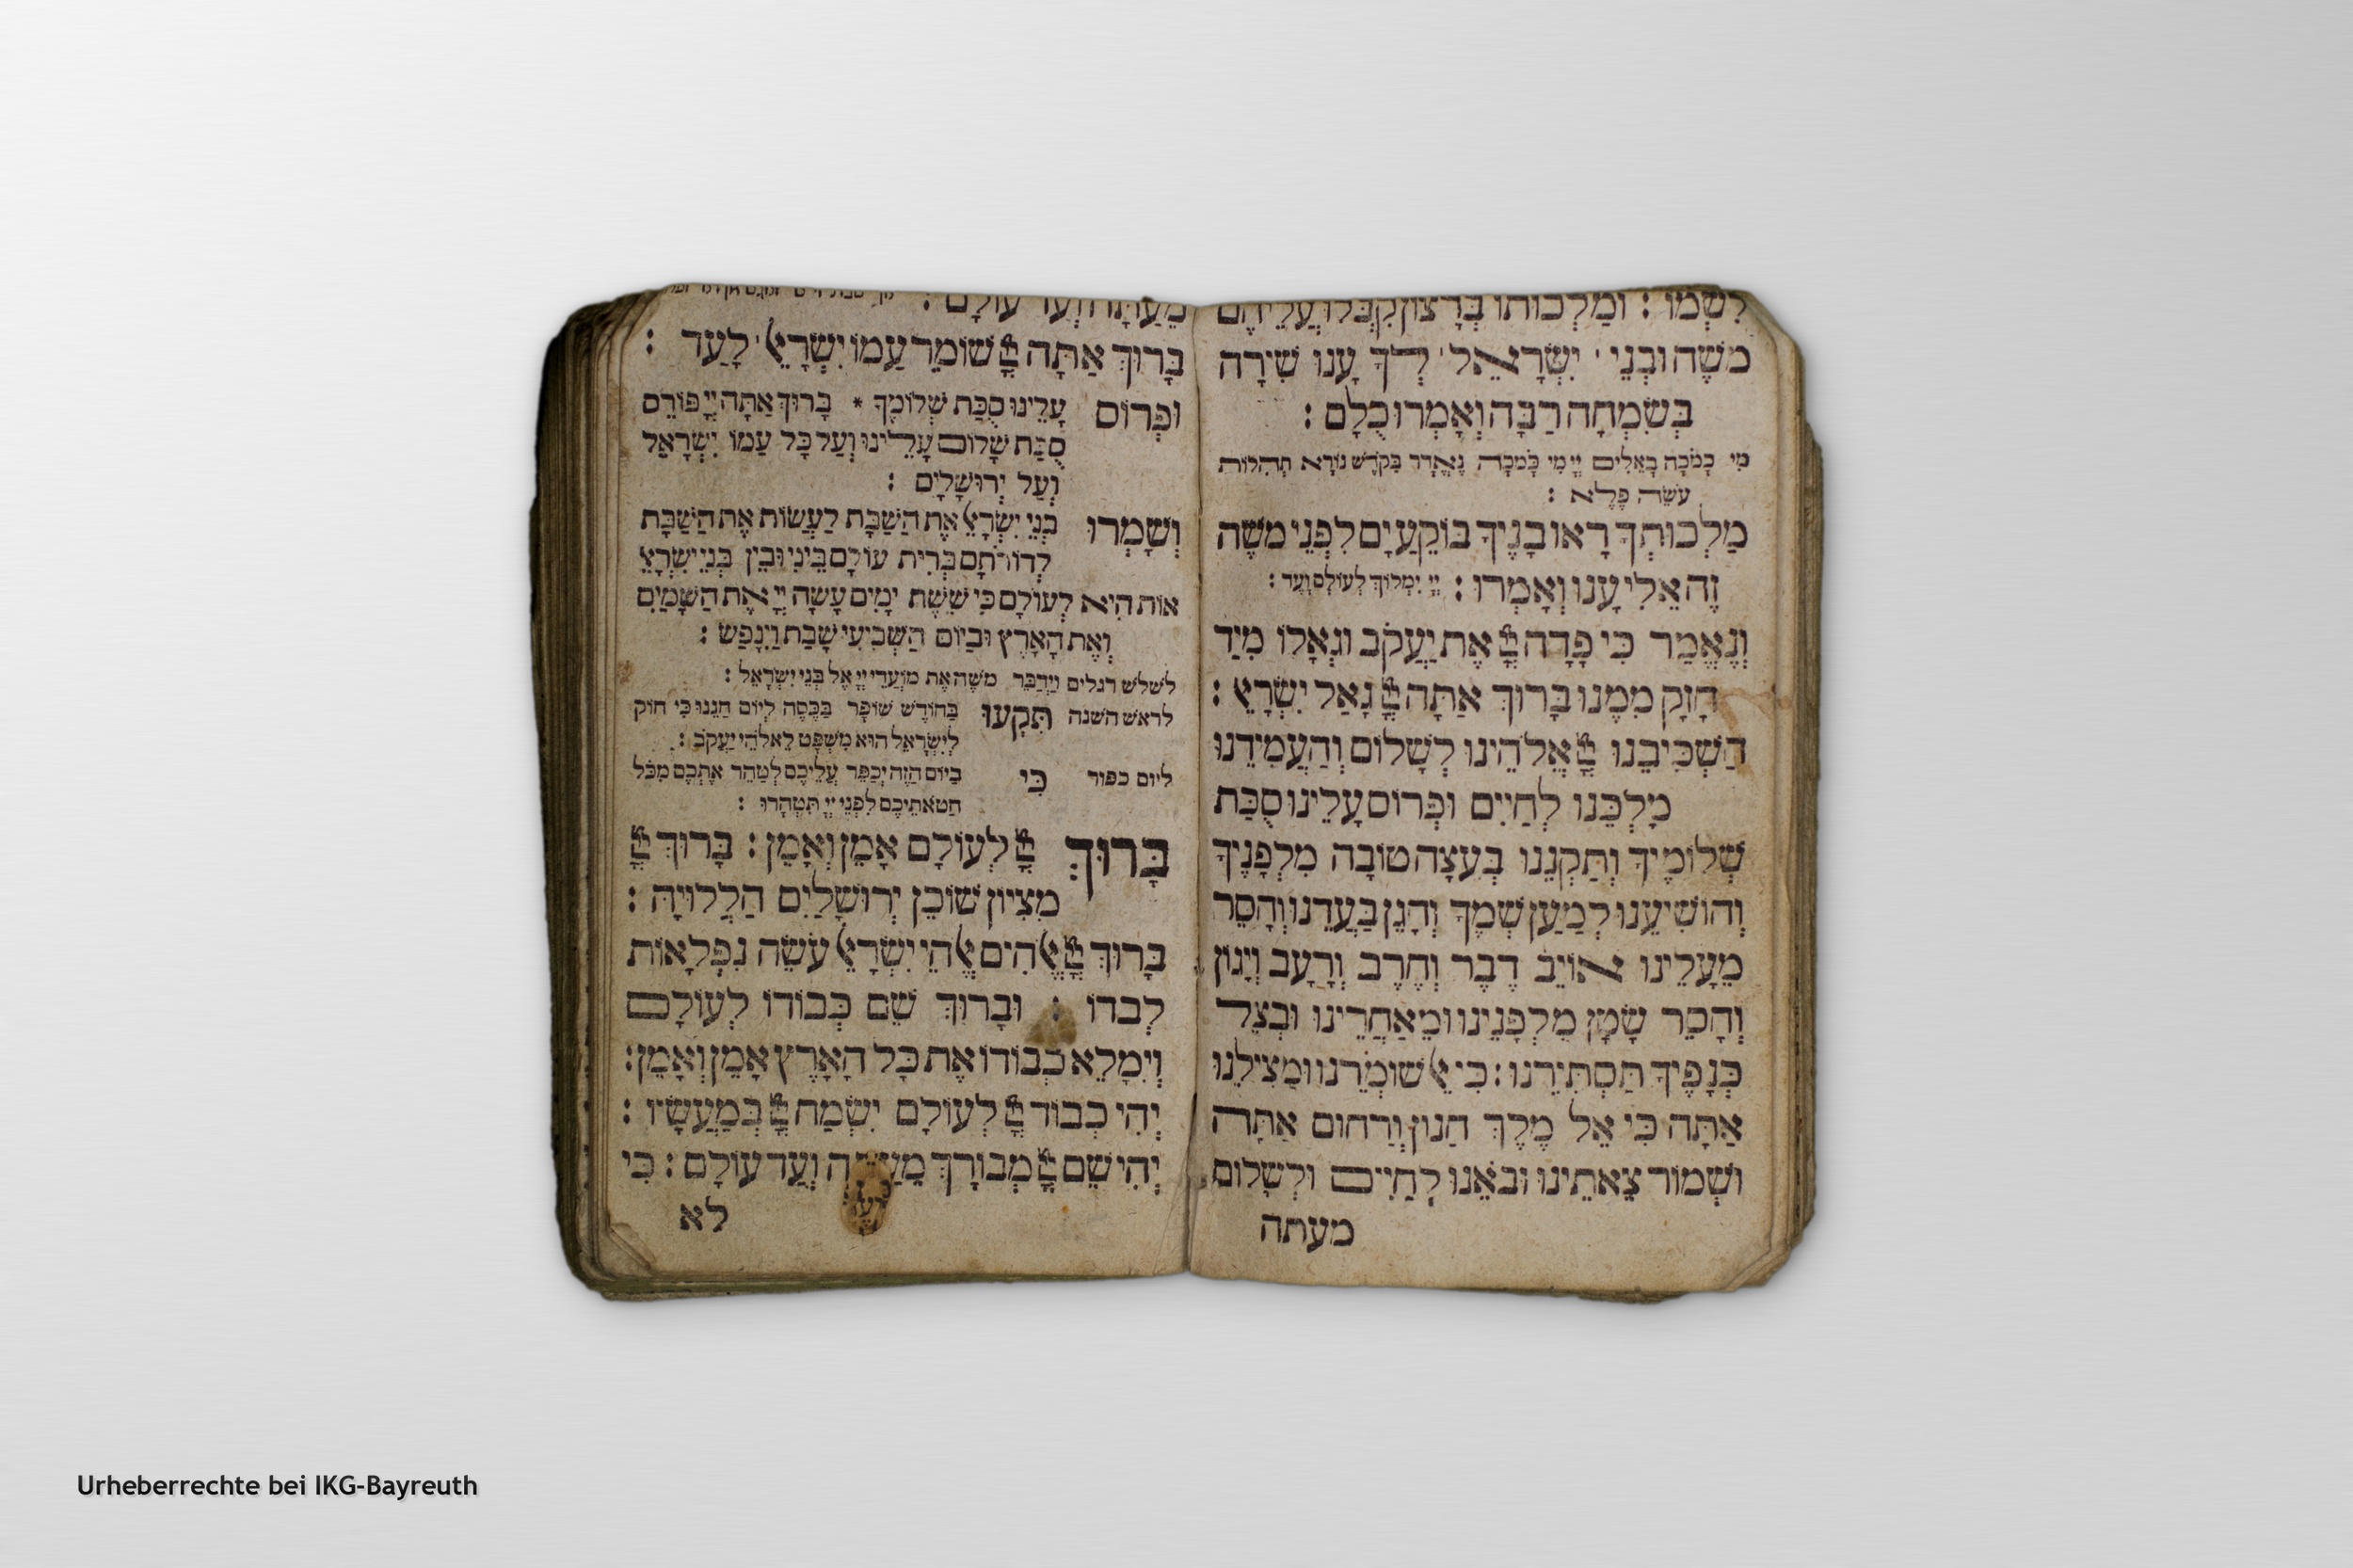 לִשְׁמוֹ : וּמַלְכוּתוֹ בְּרָצוֹן קִבְּלוּ עֲלֵיהֶם
משֶׁה וּבְנֵי יִשְׂרָאֵל לְךָ עָנוּ שִׁירָה
בְּשִׂמְחָה רַבָּה וְאָמְרוּ כֻלָּם :
מִי כָמֹכָה בָאֵלִים יְיָ מִי כָּמֹכָה נֶאְדָּר בַּקֹּדֶשׁ נוֹרָא תְהִלּוֹת
עֹשֵׂה פֶלֶא :
מַלְכוּתְךָ רָאוּ בָנֶיךָ בּוֹקֵעַ יָם לִפְנֵי משֶׁה
זֶה אֵלִי עָנוּ וְאָמְרוּ : יְיָ יִמְלוֹךְ לְעוֹלָם וָעֶד :
וְנֶאֱמַר כִּי פָדָה יְיָ אֶת יַעֲקֹב וּגְאָלוֹ מִיַּד
חָזָק מִמֶּנּוּ בָּרוּךְ אַתָּה יְיָ גָּאַל יִשְׂרָﭏ :
הַשְׁכִּיבֵנוּ יְיָ אֱלֹהֵינוּ לְשָׁלוֹם וְהַעֲמִידֵנוּ
מַלְכֵּנוּ לְחַיִּים וּפְרוֹס עָלֵינוּ סֻכַּת
שְׁלוֹמֶיךָ וְתַקְּנֵנוּ בְּעֵצָה טוֹבָה מִלְּפָנֶיךָ
וְהוֹשִׁיעֵנוּ לְמַעַן שְׁמֶךָ וְהָגֵן בַּעֲדֵנוּ וְהָסֵר
מֵעָלֵינוּ אוֹיֵב דֶּבֶר וְחֶרֶב וְרָעָב וְיָגוֹן
וְהָסֵר שָׂטָן מִלְּפָנֵינוּ וּמֵאַחֲרֵינוּ וּבְצֵל
כְּנָפֶיךָ תַּסְתִּירֵנוּ : כִּי ﭏ שׁוֹמְרֵנוּ וּמַצִּילֵנוּ
אַתָּה כִּי אֵל מֶלֶךְ חַנּוּן וְרַחוּם אַתָּה
וּשְׁמוֹר צֵאתֵינוּ וּבֹאֵנוּ לְחַיִּים וּלְשָׁלוֹם
מעתה
מֵעַתָּה וְעַד עוֹלָם :
בָּרוּךְ אַתָּה יְיָ שׁוֹמֵר עַמּוֹ יִשְׂרָﭏ לָעַד :
וּפְרוֹס עָלֵינוּ סֻכַּת שְׁלוֹמֶךָ * בָּרוּךְ אַתָּה יְיָ פּוֹרֵס
סֻכַּת שָׁלוֹם עָלֵינוּ וְעַל כָּל עַמּוֹ יִשְׂרָאֵל
וְעַל יְרוּשָׁלָיִם :
וְשָׁמְרוּ בְנֵי יִשְׂרָﭏ אֶת הַשַּׁבָּת לַעֲשׂוֹת אֶת הַשַּׁבָּת
לְדוֹרֹתָם בְּרִית עוֹלָם בֵּינִי וּבֵין בְּנֵי יִשְׂרָﭏ
אוֹת הִיא לְעוֹלָם כִּי שֵׁשֶׁת יָמִים עָשָׂה יְיָ אֶת הַשָּׁמַיִם
וְאֶת הָאָרֶץ וּבַיּוֹם הַשְּׁבִיעִי שָׁבַת וַיִּנָּפַשׁ :
לשלש רגלים וַיְדַבֵּר משֶׁה אֶת מוֹעֲדֵי יְיָ אֶל בְּנֵי יִשְׂרָאֵל :
לראש השנה תִּקְעוּ בַּחוֹדֶשׁ שׁוֹפָר בַּכֶּסֶה לְיוֹם חַגֵּנוּ כִּי חוֹק
לְיִשְׂרָאֵל הוּא מִשְׁפָּט לֵאלֹהֵי יַעֲקֹב :
ליום כפור כִּי בַיּוֹם הַזֶּה יְכַפֵּר עֲלֵיכֶם לְטַהֵר אֶתְכֶם מִכֹּל
חַטֹּאתֵיכֶם לִפְנֵי יְיָ תִּטְהָרוּ :
בָּרוּךְ יְיָ לְעוֹלָם אָמֵן וְאָמֵן : בָּרוּךְ יְיָ
מִצִּיּוֹן שׁוֹכֵן יְרוּשָׁלַיִם הַלְלוּיָהּ :
בָּרוּךְ יְיָ ﭏהִים ﭏהֵי יִשְׂרָﭏ עֹשֵׂה נִפְלָאוֹת
לְבַדּוֹ : וּבָרוּךְ שֵׁם כְּבוֹדוֹ לְעוֹלָם
וְיִמָּלֵא כְבוֹדוֹ אֶת כָּל הָאָרֶץ אָמֵן וְאָמֵן :
יְהִי כְבוֹד יְיָ לְעוֹלָם יִשְׂמַח יְיָ בְּמַעֲשָׂיו :
יְהִי שֵׁם יְיָ מְבוֹרָךְ מֵעַתָּה וְעַד עוֹלָם : כִּי
לא
Urheberrechte bei IKG-Bayreuth